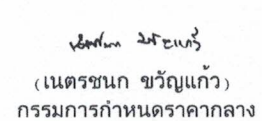 (เนตรชนก ขวัญแก้ว)
กรรมการกำหนดราคากลาง